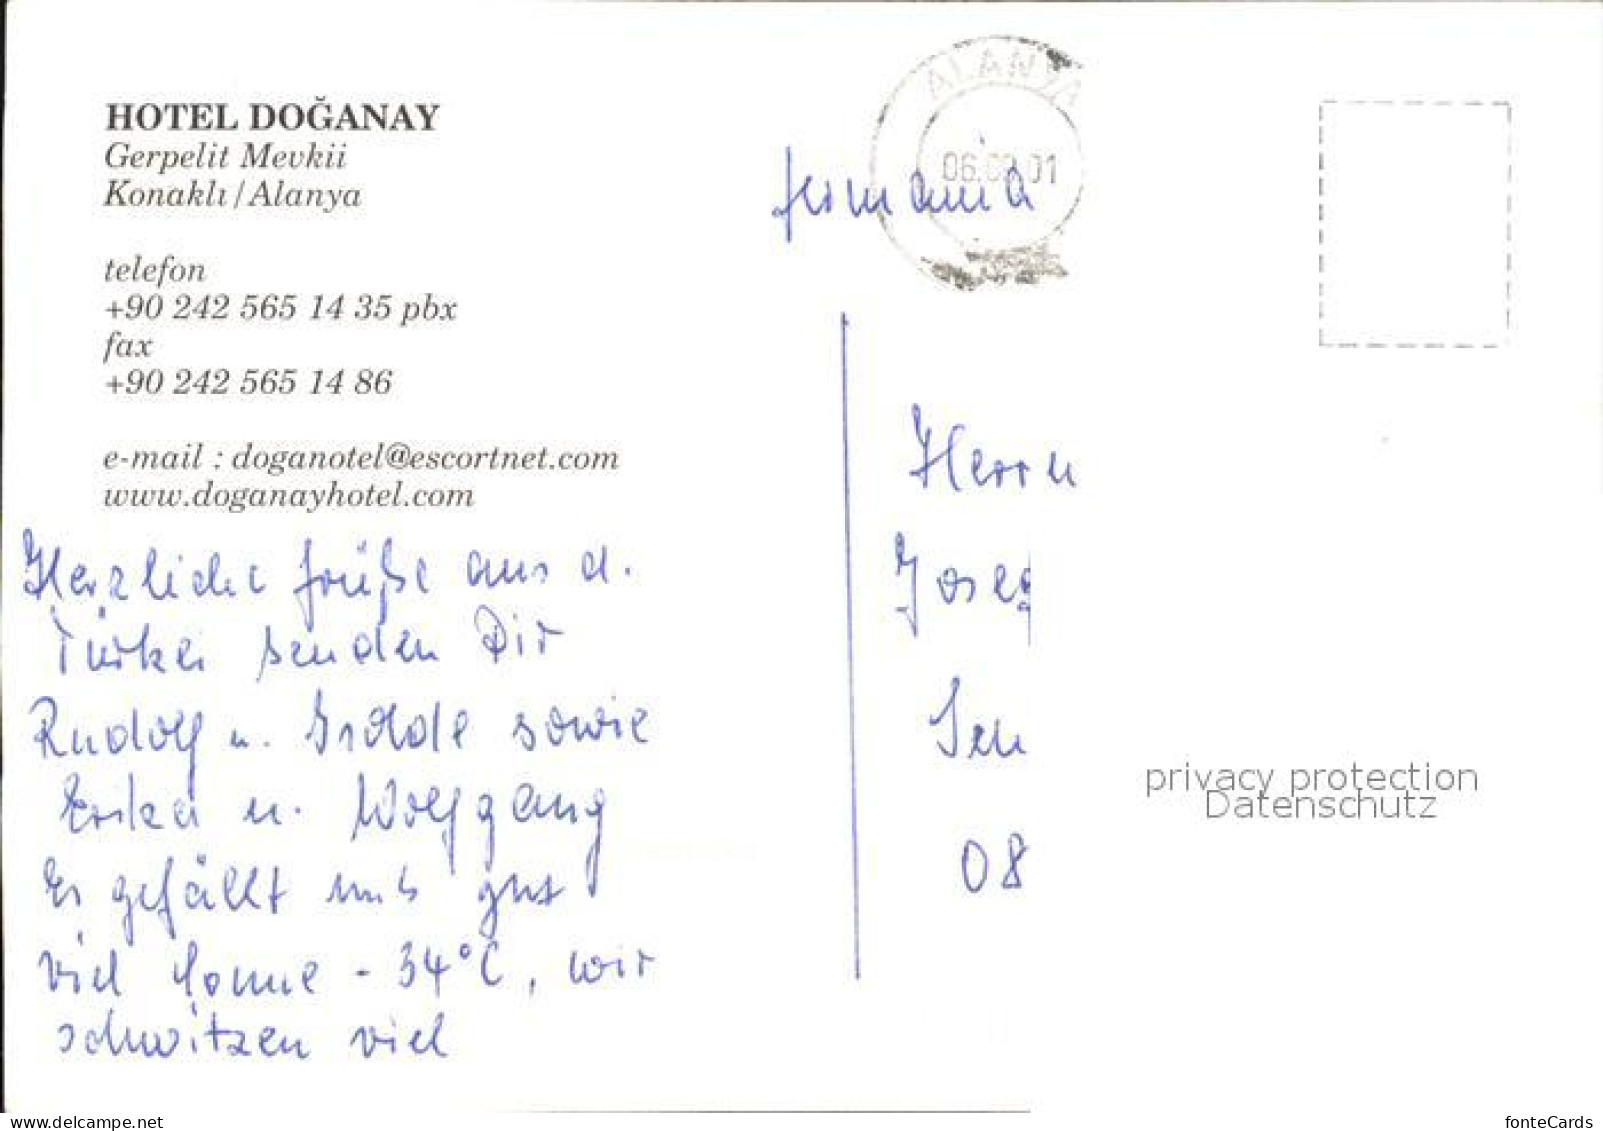 HOTEL DOĞANAY
Gerpelit Mevkii
Konaklı/Alanya
telefon
+90 242 565 14 35 pbx
fax
+90 242 565 14 86
e-mail : doganotel@escortnet.com
www.doganayhotel.com
Herzliche Grüße aus d.
Türkei senden Dir
Rudolf u. sowie
Erika u. Wolfgang
Es gefällt uns gut
viel Sonne - 34°C, wir
schwitzen viel
ALANYA
06. 01
Germania
Herrn
Josep
08
privacy protection
Datenschutz
www.delcampe.net
fonteCards